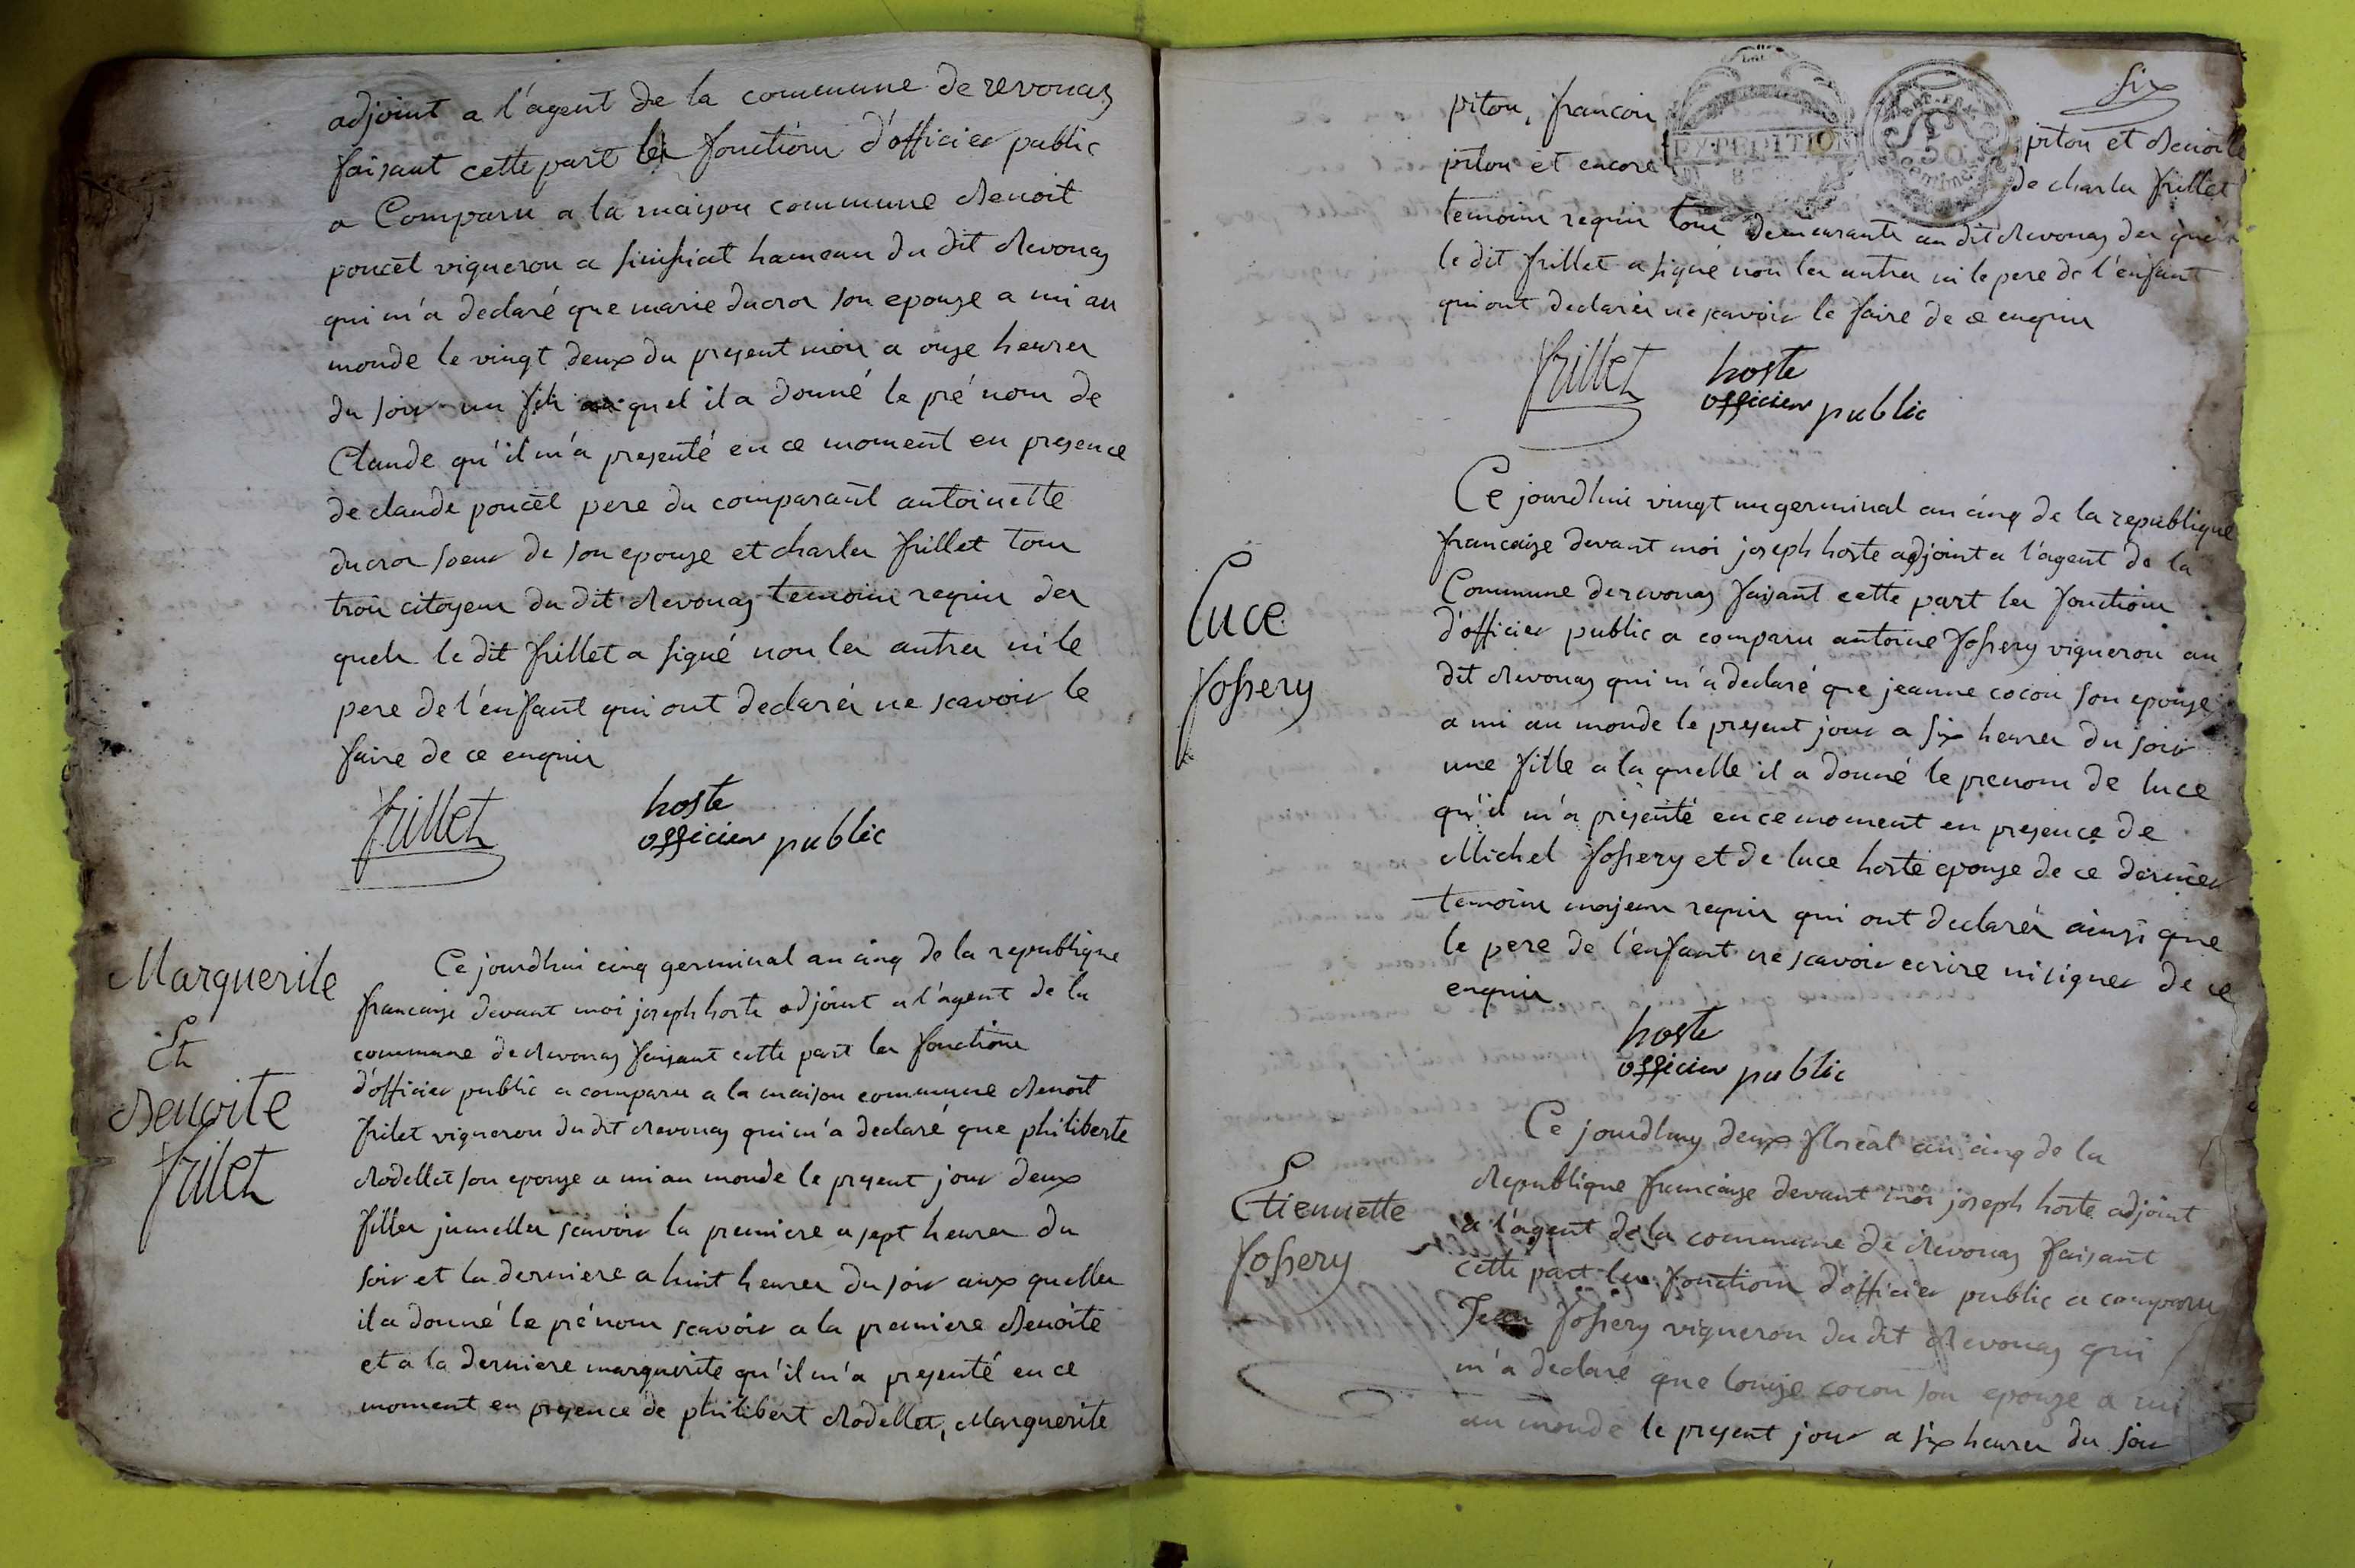 adjoint a l'agent de la commune de revonas
faisant cette part les fonctions d'officier public
a Comparu a la maison commune Benoit
poncet vigneron a simsiat hameau du dit Revonas
qui m'a declaré que marie ducros son epouze a mi au
monde le vingt deux du present mois a onze heures
du soir un fils auquel il a donné le pré nom de
Claude qu'il m'a presenté en ce moment en presence
de claude poncet pere du comparant antoinette
ducros soeur de son epouze et charles frillet tous
trois citoyens du dit Revonas temoins requis des
quels le dit frillet a signé non les autres ni le
pere de l'enfant qui ont declarés ne scavoir le
faire de ce enquis
frillet
hoste
officier public
Marguerite
Et
Benoite
frilet
Ce jourdhui cinq germinal an cinq de la republique
francaise devant moi joseph hoste adjoint a l'agent de la
commune de Revonas faisant cette part les fonctions
d'officier public a comparu a la maison commune Benoit
frilet vigneron du dit Revonas qui m'a declaré que philiberte
Rodellet son epouze a mi au monde le present jour deux
filles jumelles scavoir la premiere a sept heures du
soir et la derniere a huit heures du soir aux quelles
il a donné le pré nom scavoir a la premiere Benoite
et a la derniere marguerite qu'il m'a presenté en ce
moment en presence de philibert Rodellet, Marguerite
six
EXPEDITION
piton, francois piton et Benoite
piton et encore de charles frillet
temoins requis tous demeurants au dit Revonas des quels
le dit frillet a signé non les autres ni le pere de l'enfant
qui ont declarés ne scavoir le faire de ce enquis
frillet
hoste
officier public
Luce
Jossery
Ce jourdhui vingt un germinal an cinq de la republique
francaise devant moi joseph hoste adjoint a l'agent de la
Commune de revonas faisant cette part les fonctions
d'officier public a comparu antoine Jossery vigneron au
dit Revonas qui m'a declaré que jeanne cocon son epouze
a mi au monde le present jour a six heures du soir
une fille a la quelle il a donné le prenom de luce
qu'il m'a présenté en ce moment en presence de
Michel Jossery et de luce hoste epouze de ce dernier
temoins majeurs requis qui ont declarés ainsi que
le pere de l'enfant ne scavoir ecrire ni signer de ce
enquis
hoste
officier public
Etiennette
Jossery
Ce jourdhuy deux floréal an cinq de la
Republique francaise devant moi joseph hoste adjoint
a l'agent de la commune de Revonas faisant
cette part les fonctions d'officier public a comparu
Jean Jossery vigneron du dit Revonas qui
m'a declaré que louise cocon son epouze a mi
au monde le present jour a six heures du soir